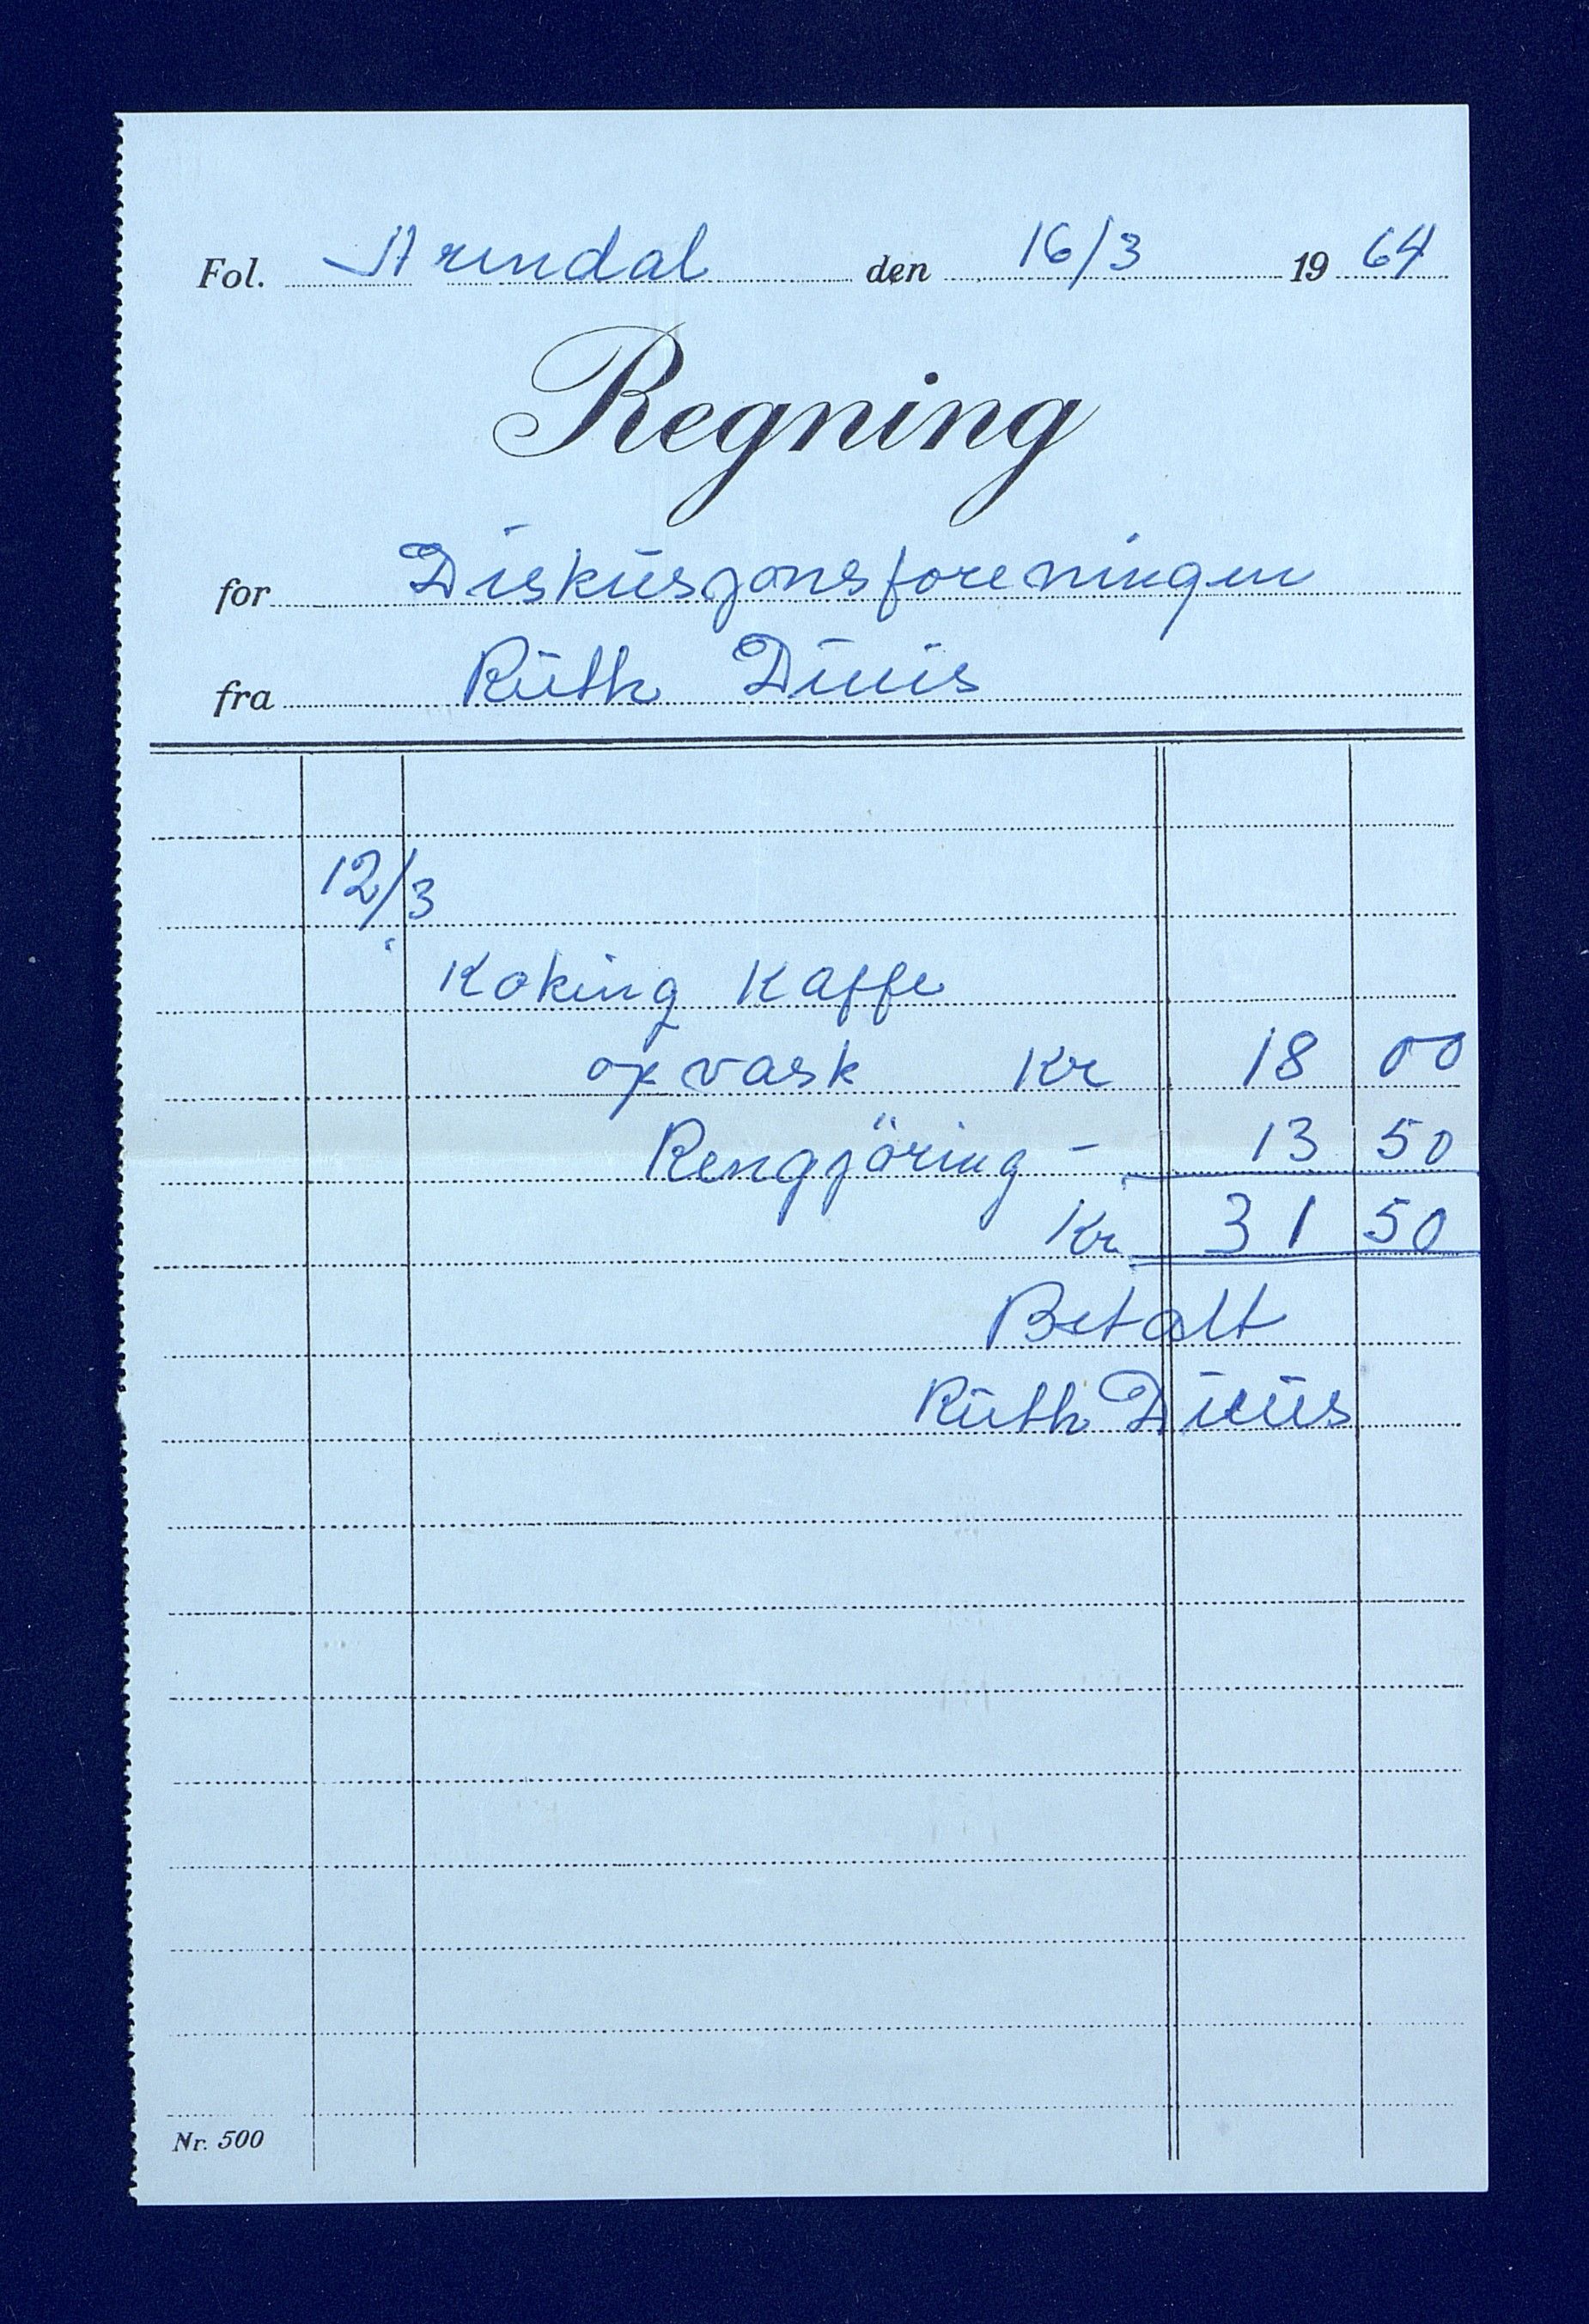 Fol. Arendal den 16/3 1964
Regning
for Diskusjonsforeningen
fra Ruth
12/3
Koking Kaffe
op vask Kr 18 00
Rengjöring - 13 50
Kr 31 50
Betalt
Ruth
Nr. 500